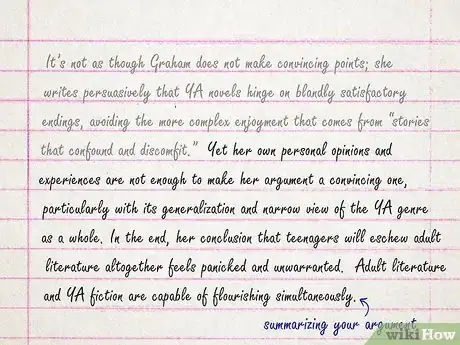 It's not as though Graham does not make convincing points; she
writes persuasively that YA novels hinge on blandly satisfactory
endings, avoiding the more complex enjoyment that comes from "stories
that confound and discomfit." Yet her own personal opinions and
experiences are not enough to make her argument a convincing one,
particularly with its generalization and narrow view of the YA genre
as a whole. In the end, her conclusion that teenagers will eschew adult
literature altogether feels panicked and unwarranted. Adult literature
and YA fiction are capable of flourishing simultaneously.
summarizing your argument
wikiHow